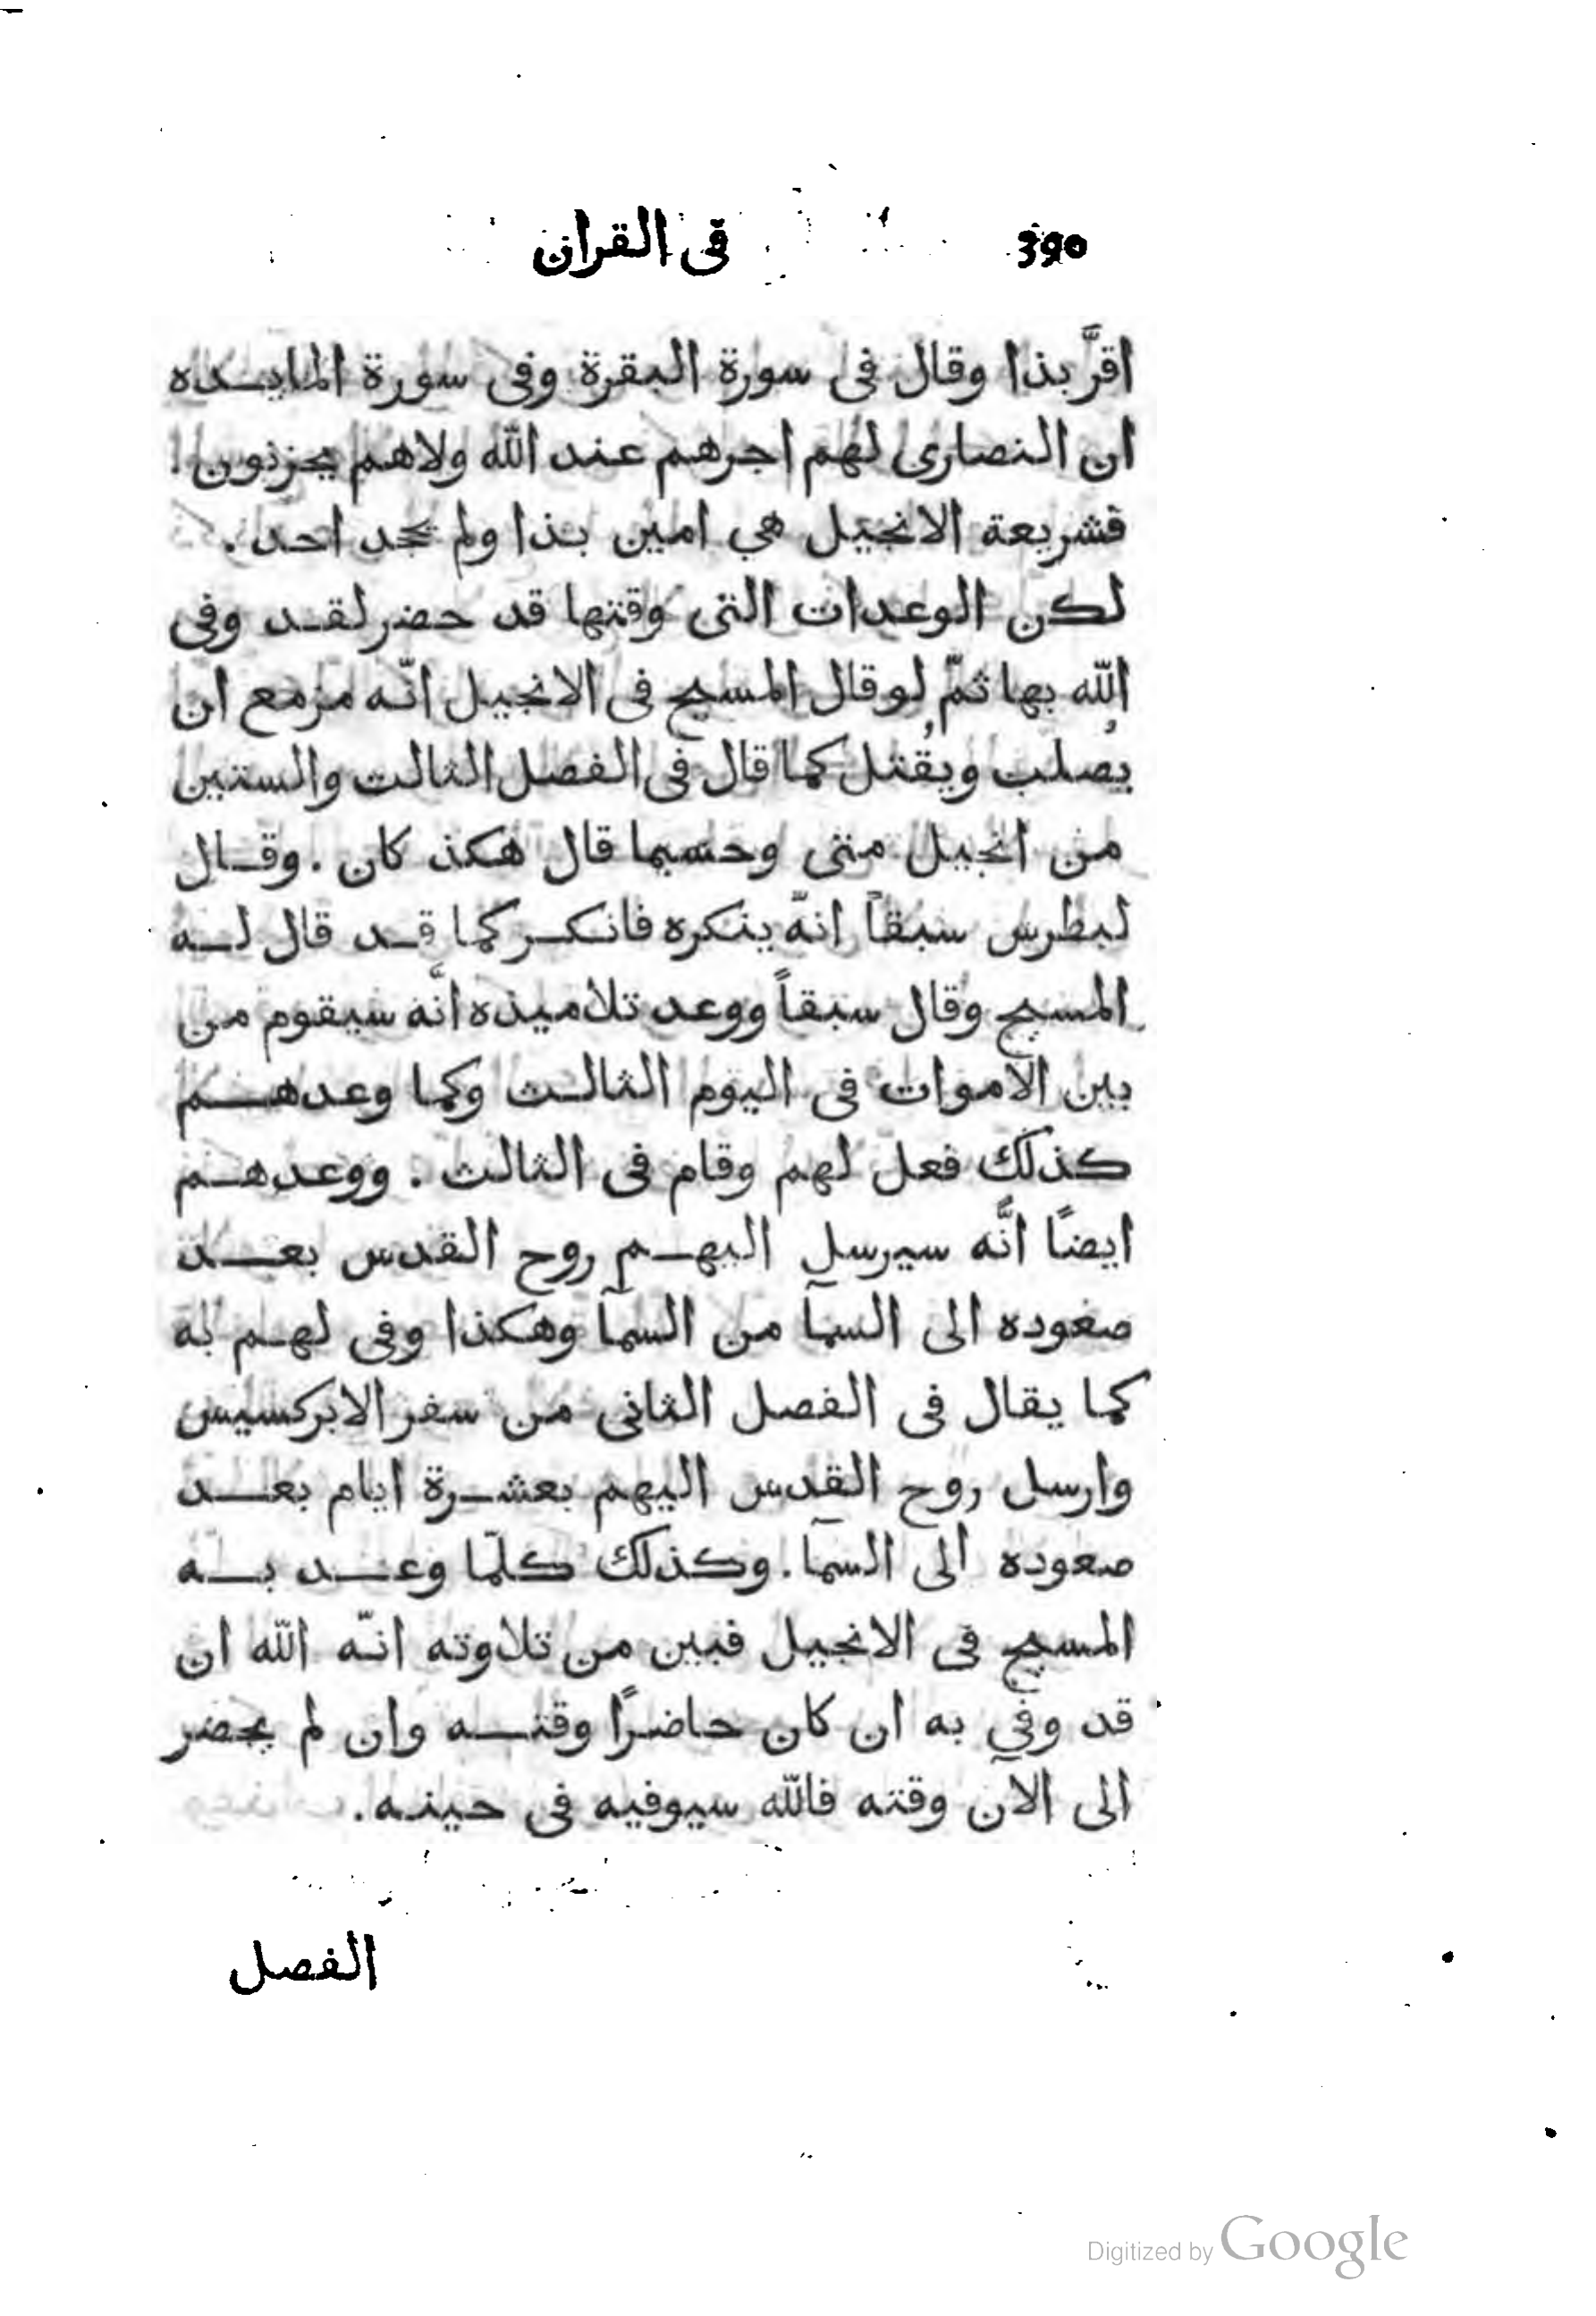 390 في القران
اقرَّ بذا وقال في سورة البقرة وفي سورة المايده
ان النصارى لهم اجرهم عند الله ولاهم يحزنون
فشريعة الانجيل هي امين بذا ولم يحد احد .
لكن الوعدات التي وقتها قد حضر لقد وفي
الله بها ثمّ لو قال المسيح في الانجيل انّه مزمع ان
يُصلب ويُقتل كما قال في الفصل الثالث والستين
من انجيل متى وحسبما قال هكذ كان . وقال
لبطرس سبقاً انّه ينكره فانكر كما قد قال له
المسيح وقال سبقاً ووعد تلاميذه انَّه سيقوم من
بين الاموات في اليوم الثالث وكما وعدهم
كذلك فعل لهم وقام في الثالث . ووعدهم
ايضًا انَّه سيرسل اليهم روح القدس بعد
صعوده الى السمآ من السمآ وهكذا وفي لهم به
كما يقال في الفصل الثاني من سفر الابركسيس
وارسل روح القدس اليهم بعشرة ايام بعد
صعوده الى السمآ . وكذلك كلّما وعد به
المسيح في الانجيل فبين من تلاوته انّه الله ان
قد وفي به ان كان حاضرًا وقته وان لم يحضر
الى الآن وقته فالله سيوفيه في حينه .
الفصل
Digitized by Google